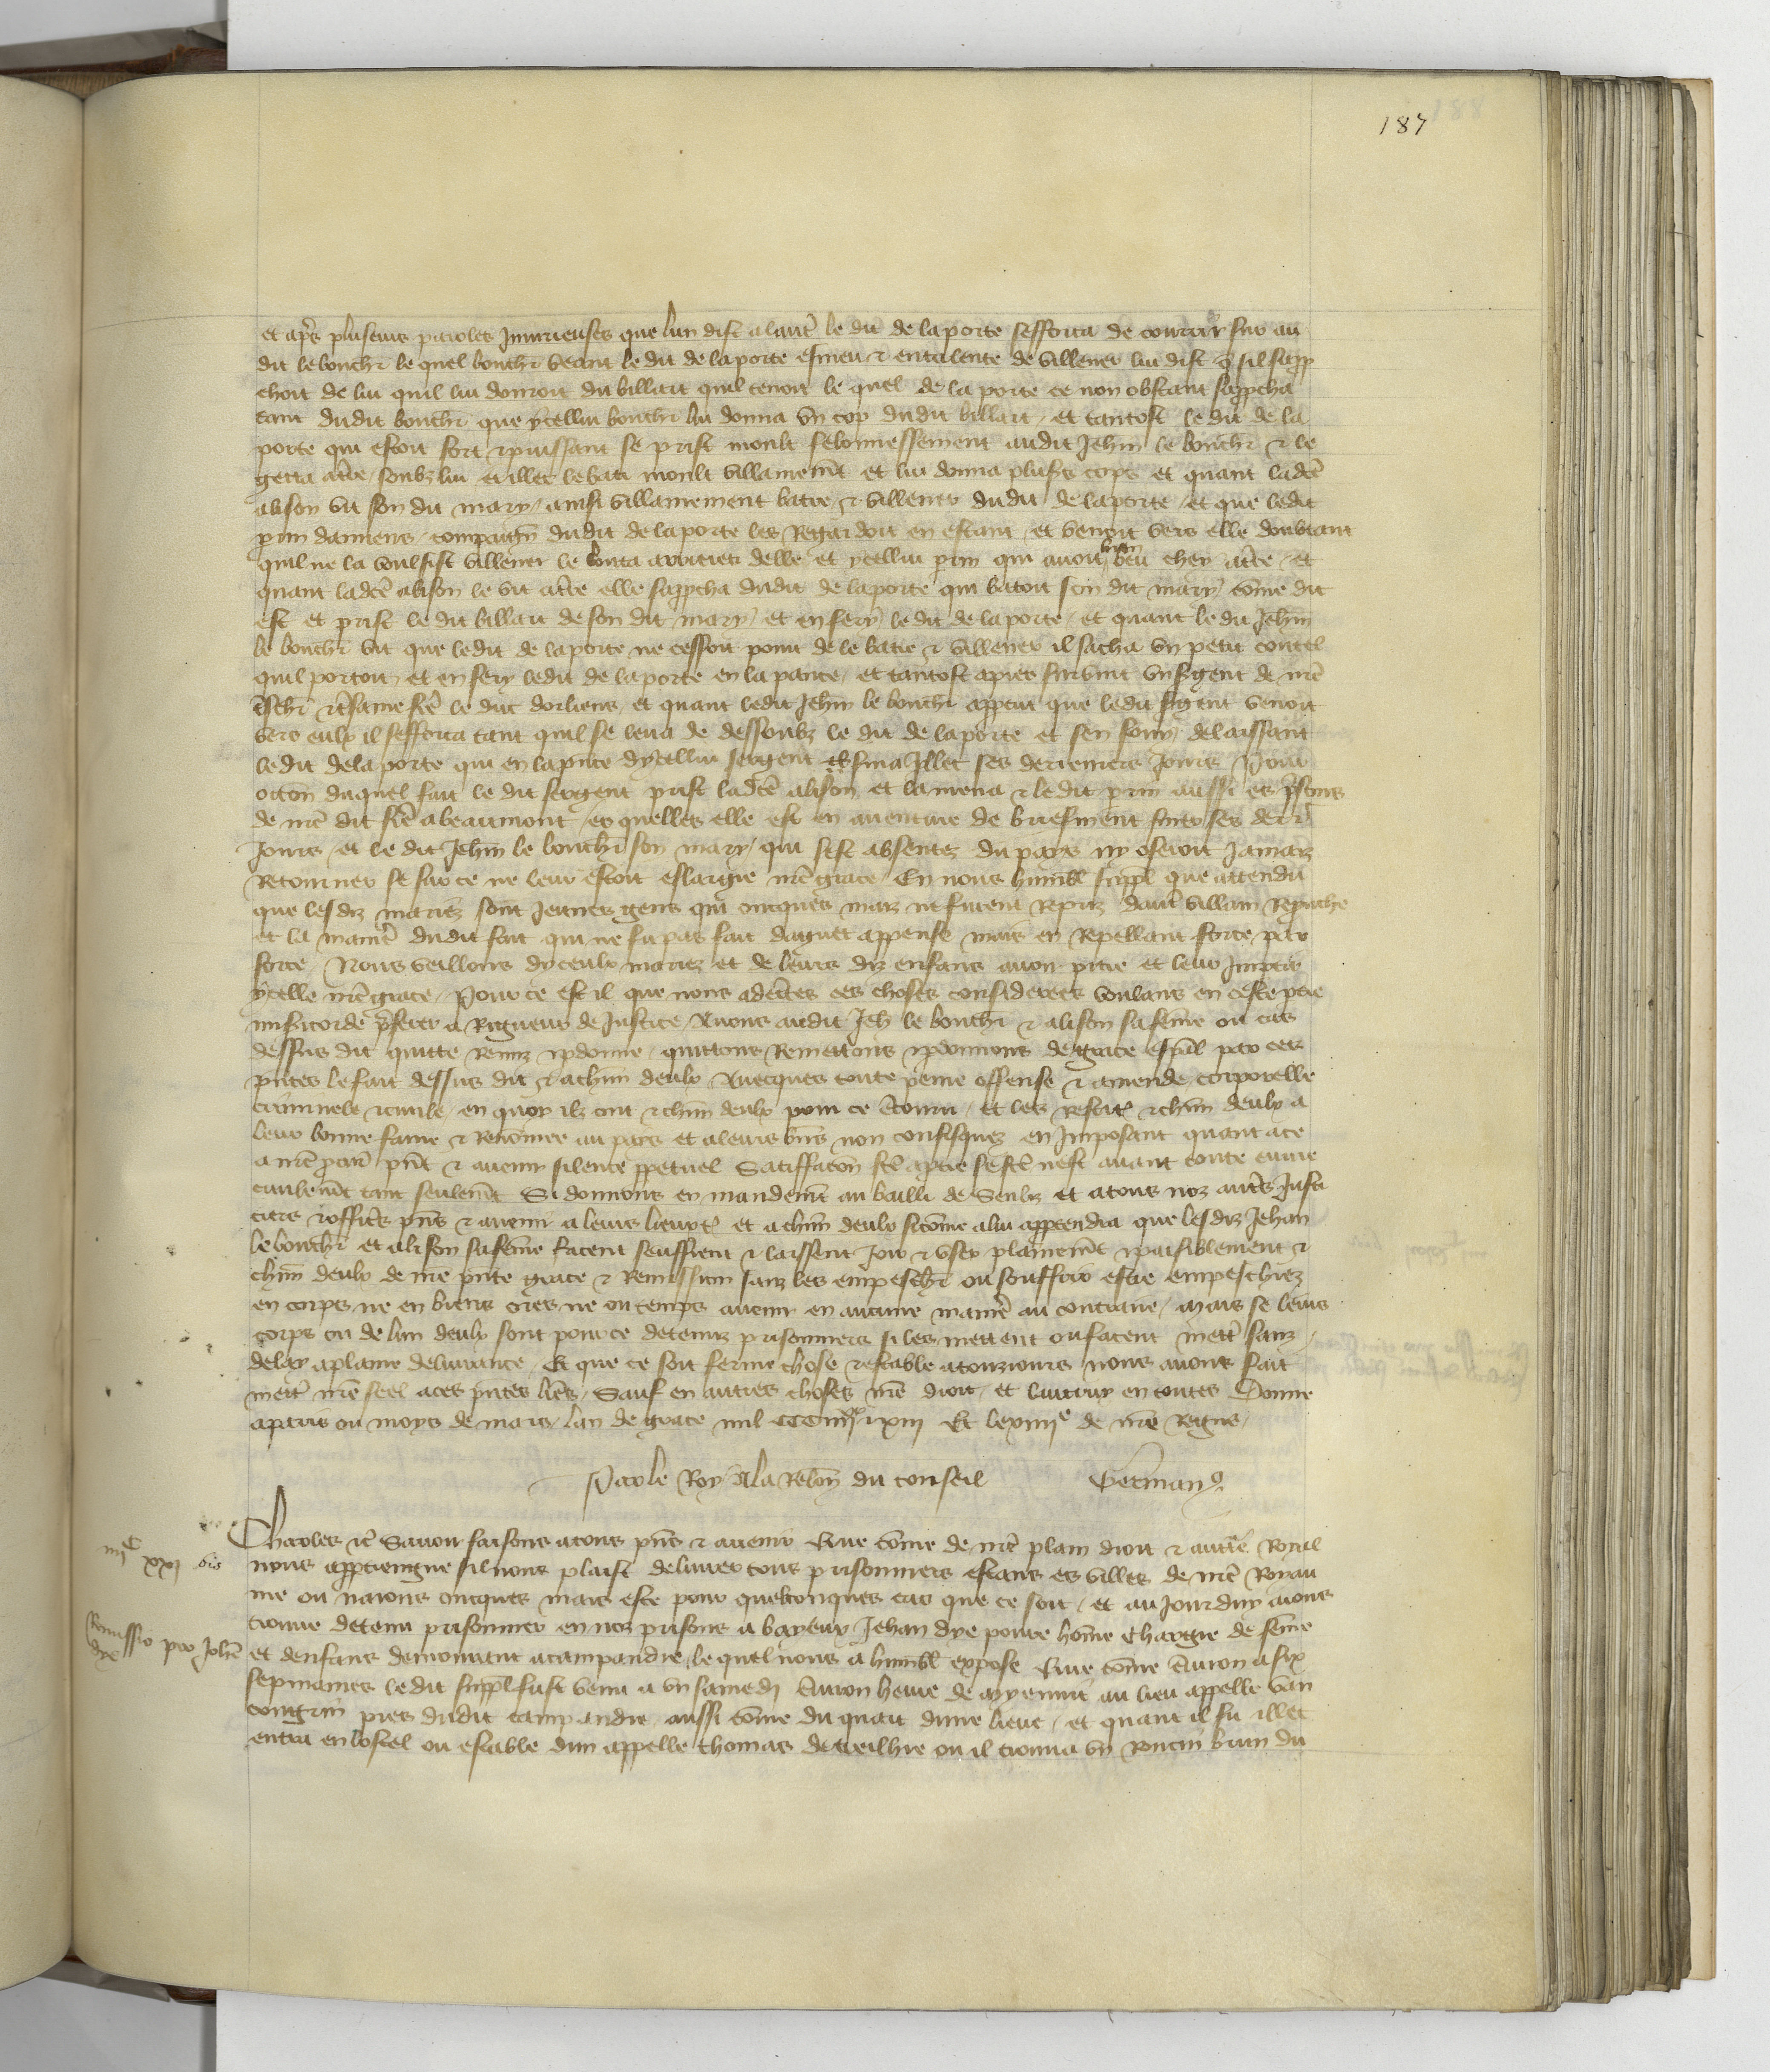 187
et apres pluseurs paroles Iniurieuses que lun dist a lautre le dit de laporte sefforca de courir sur au
dit le bouchr le quel bouchr veant le dit de laporte esmeu et entalente de villener lui dist q̃ sil sapp
choit de lui quil lui donroit du billart quil tenoit le quel de la porte ce non obstant sapp̃cha
tant dudit bouchr que ycellui bouchr lui donna vn cop dudit billart / et tantost le dit de la
porte qui estoit fort et puissant se prist moult felonnessement audit Jehan le bouchr et le
getta at̃re soubz lui et illec le bati moult villainemẽt et lui donna plus̃rs cops et quant ladc̃e
alison vit son dit mary / ainsi villainement batre et villener dudit de laporte / et que ledit
prin damiens / compaignõ dudit de laporte les Regardoit en estant / et venoit vers elle doubtant
quil ne la voulsist villener le bouta arrieres delle et ycellui prin qui auoit bien beu chey at̃re / et
quant ladc̃e alison le vit at̃re elle sapp̃cha dudit de laporte qui batoit son dit mary / cõme dit
est et prist le dit billart de son dit mary / et en fery le dit de laporte / et quant le dit Jehan
le bouchr vit que ledit de laporte ne cessoit point de le batre et villener il sacha vn petit coutel
quil portoit / et en fery ledit de laporte en la pance / et tantost apres suruint vn s̃gent de nr̃e
tsch̃r et t̃same fr̃e le duc dorliens et quant ledit Jehan le bouchr apperceut que ledit s̃gent venoit
vers eulx il sefforca tant quil se leua de dessoubz le dit de laporte et sen fouy / delaissant
ledit de la porte qui en la p̃nce dycellui sergent fina Illec ses derreniers Jours / Pour
occõn duquel fait le dit sergent prist ladc̃e alison et lamena et le dit prin aussi es p̃sons
de nr̃e dit fr̃e a beaumont / es quelles elle est en auenture de briefment finer ses derr̃
Jours / et le dit Jehan le bouchr son mary / qui sest absentez du pays ny oseroit Jamaiz
Retourner se sur ce ne leur estoit eslargie nr̃e grace / En nous humbl suppl que attendu
que lesdiz mariez sont Jeunes gens qui oncques maiz ne furent Repriz daut̃ villain Reprouche
et la manie᷒ dudit fait qui ne fu pas fait daguet appense mais en Repellant force par
force / Nous veillons dyceulx mariez et de leurs diz enfans auoir pitie et leur Impartir
ycelle nr̃e grace / Pour ce est il que nous adec̃tes ces choses considerees voulans en ceste p̃tie
mis̃icorde p̃ferer a Rigueur de Justice / Auons audit Jeh le bouchr et alison sa fem̃e ou cas
dessus dit quitte Remiz et p̃donne / quittons Remettons et p̃donnons de grace esp̃al par ces
p̃ntes le fait dessus dit et a chm̃ deulx Auecques toute peine offense et amende corporelle
criminele et ciuile / en quoy ilz ont et chm̃ deulx pour ce ẽcouru / et les Restit᷒ et chm̃ deulx a
leur bonne fame et Renõmee au pays et a leurs bñs non confisquez en Imposant quant ace
a nr̃e pcur̃ p̃nt et auenir silence p̃petuel Satiffacõn fc̃e a p̃tie se fc̃e nest auant toute euure
ciuilemẽt tant seulemẽt Si donnons en mandemẽt au bailli de Senliz et atous noz aut̃s Justi
ciers et offic̃rs p̃ns et auenir a leurs lieuxt᷒ et a chm̃ deulx sicõme a lui appartendra que lesdiz Jehan
le bouchr et alison sa fem̃e facent seuffrent et laissent Joir et vser plainemẽt et paisiblement et
chm̃ deulx de nr̃e p̃nte grace et Remission sanz les empesch̃r ou souffrir estre empeschiez
en corps ne en biens ores ne ou temps auenir en aucune manie᷒ au contraire / Mais se leurs
corps ou de lun deulx sont pour ce detenuz prisonniers si les mettent ou facent mettr̃ sanz
delay a plaine deliurance / Et que ce soit ferme chose et estable a touziours nous auons fait
mettr̃ nr̃e seel a ces p̃ntes lr̃es / Sauf en autres choses nr̃e droit / et lautruy en toutes Donne
a paris ou moys de mars / lan de grace mil CCC iiijxx et xiij Et le xiiije de nr̃e Regne /
Par le Roy / A la Relõn du conseil Germany9
iiijC xxj bis
Remissio pro Joh̃e dye
Charles etc̃ Sauoir faisons atous p̃ns et auenir Que cõme de nr̃e plain droit et auctẽ Royal
nous appartiengne sil nous plaist deliurer tous prisonniers estans es villes de nr̃e Royau
me ou naions oncques mais este pour quelconques cas que ce soit / et au Jourduy aions
trouue detenu prisonnier en noz prisons a bayeux Jehan dye poure hom̃e Chargie de fem̃e
et denfans demourant acampandre / le quel nous a humbl expose Que cõme ẽuiron a six
sepmaines le dit suppl̃ fust venu a vn samedi ẽuiron heure de myenuit au lieu appelle van
congrin pres dudit campandre aussi cõme du quart dune lieue / et quant il fu illec
entra en lostel ou estable dun appelle thomas de treilhie ou il trouua vn Roncin brun du